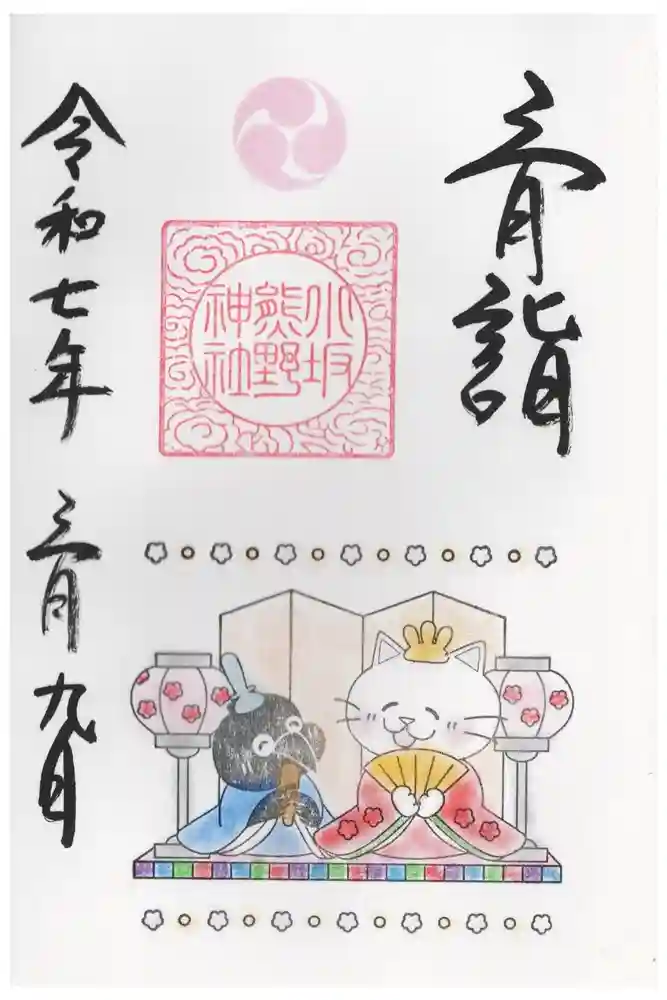 三月詣
小坂
熊野
神社
令和七年三月九日